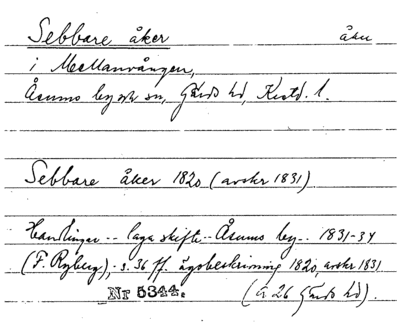 Sebbare åker åker
i Mellanvången,
Åsums by och sn, Gärds hd, Kristd. l.
Sebbare åker 1820 (avskr 1831)
Handlingar -- laga skifte -- Åsums by -- 1831-34
(F. Ryberg), s. 36 ff. ägobeskrivning 1820, avskr 1831
Nr 5344. (Å 26 Gärds hd).